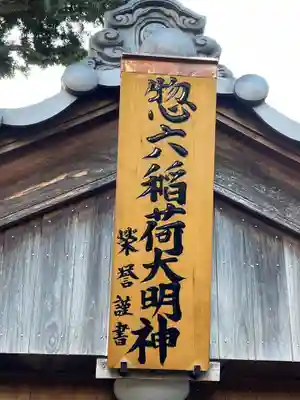 惣六稲荷大明神
榮誉謹書